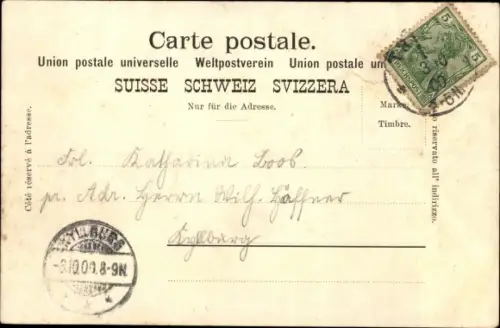 Carte postale.
Union postale universelle Weltpostverein Union postale un
SUISSE SCHWEIZ SVIZZERA
Nur für die Adresse.
Marke
Timbre.
Côté réservé à l'adresse.
riservato all' indirizzo.
5
5
Frl. Katharina Loos
pr. Adr. Herrn Wilh. Häffner
Kyllburg
KYLLBURG
-3.10.00.8-9N.